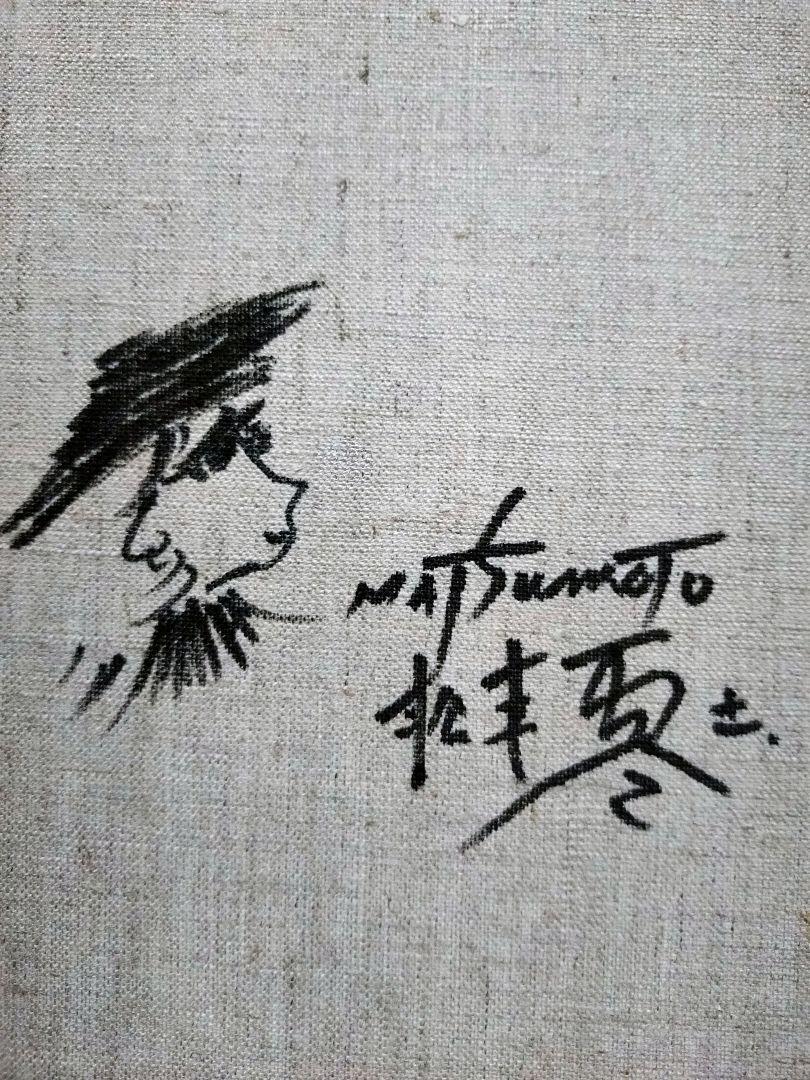 MATSUMOTO
松本零士.